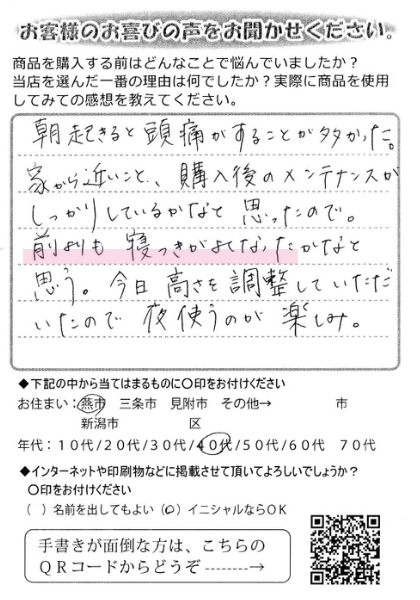 お客様のお喜びの声をお聞かせください。
商品を購入する前はどんなことで悩んでいましたか？
当店を選んだ一番の理由は何でしたか？実際に商品を使用
してみての感想を教えてください。
朝起きると頭痛がすることが多かった。
家から近いこと、購入後のメンテナンスが
しっかりしているかなと思ったので。
前よりも寝つきがよくなったかなと
思う。今日高さを調整していただ
いたので夜使うのが楽しみ。
◆下記の中から当てはまるものに〇印をお付けください
お住まい：燕市 三条市 見附市 その他→ 市
新潟市 区
年代：１０代/２０代/３０代/４０代/５０代/６０代 ７０代
◆インターネットや印刷物などに掲載させて頂いてよろしいでしょうか？
〇印をお付けください
（ ）名前を出してもよい（○）イニシャルならＯＫ
手書きが面倒な方は、こちらの
ＱＲコードからどうぞ --------→